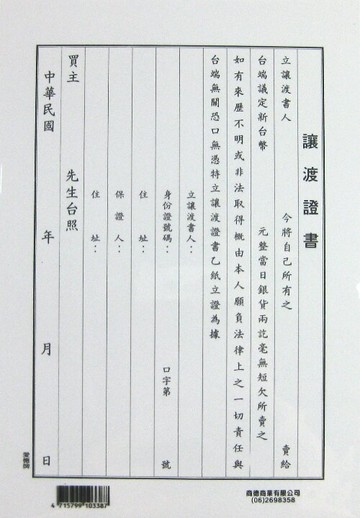 讓渡證書
立讓渡書人　今將自己所有之　賣給
台端議定新台幣　元整當日銀貨兩訖毫無短欠所賣之
如有來歷不明或非法取得概由本人願負法律上之一切責任與
台端無關恐口無憑特立讓渡證書乙紙立證為據
立讓渡書人：
身份證號碼：　口字第　號
住　址：
保證人：
住　址：
買主　先生台照
中華民國　年　月　日
4 715799 103387
商德商業有限公司
(06)2698358